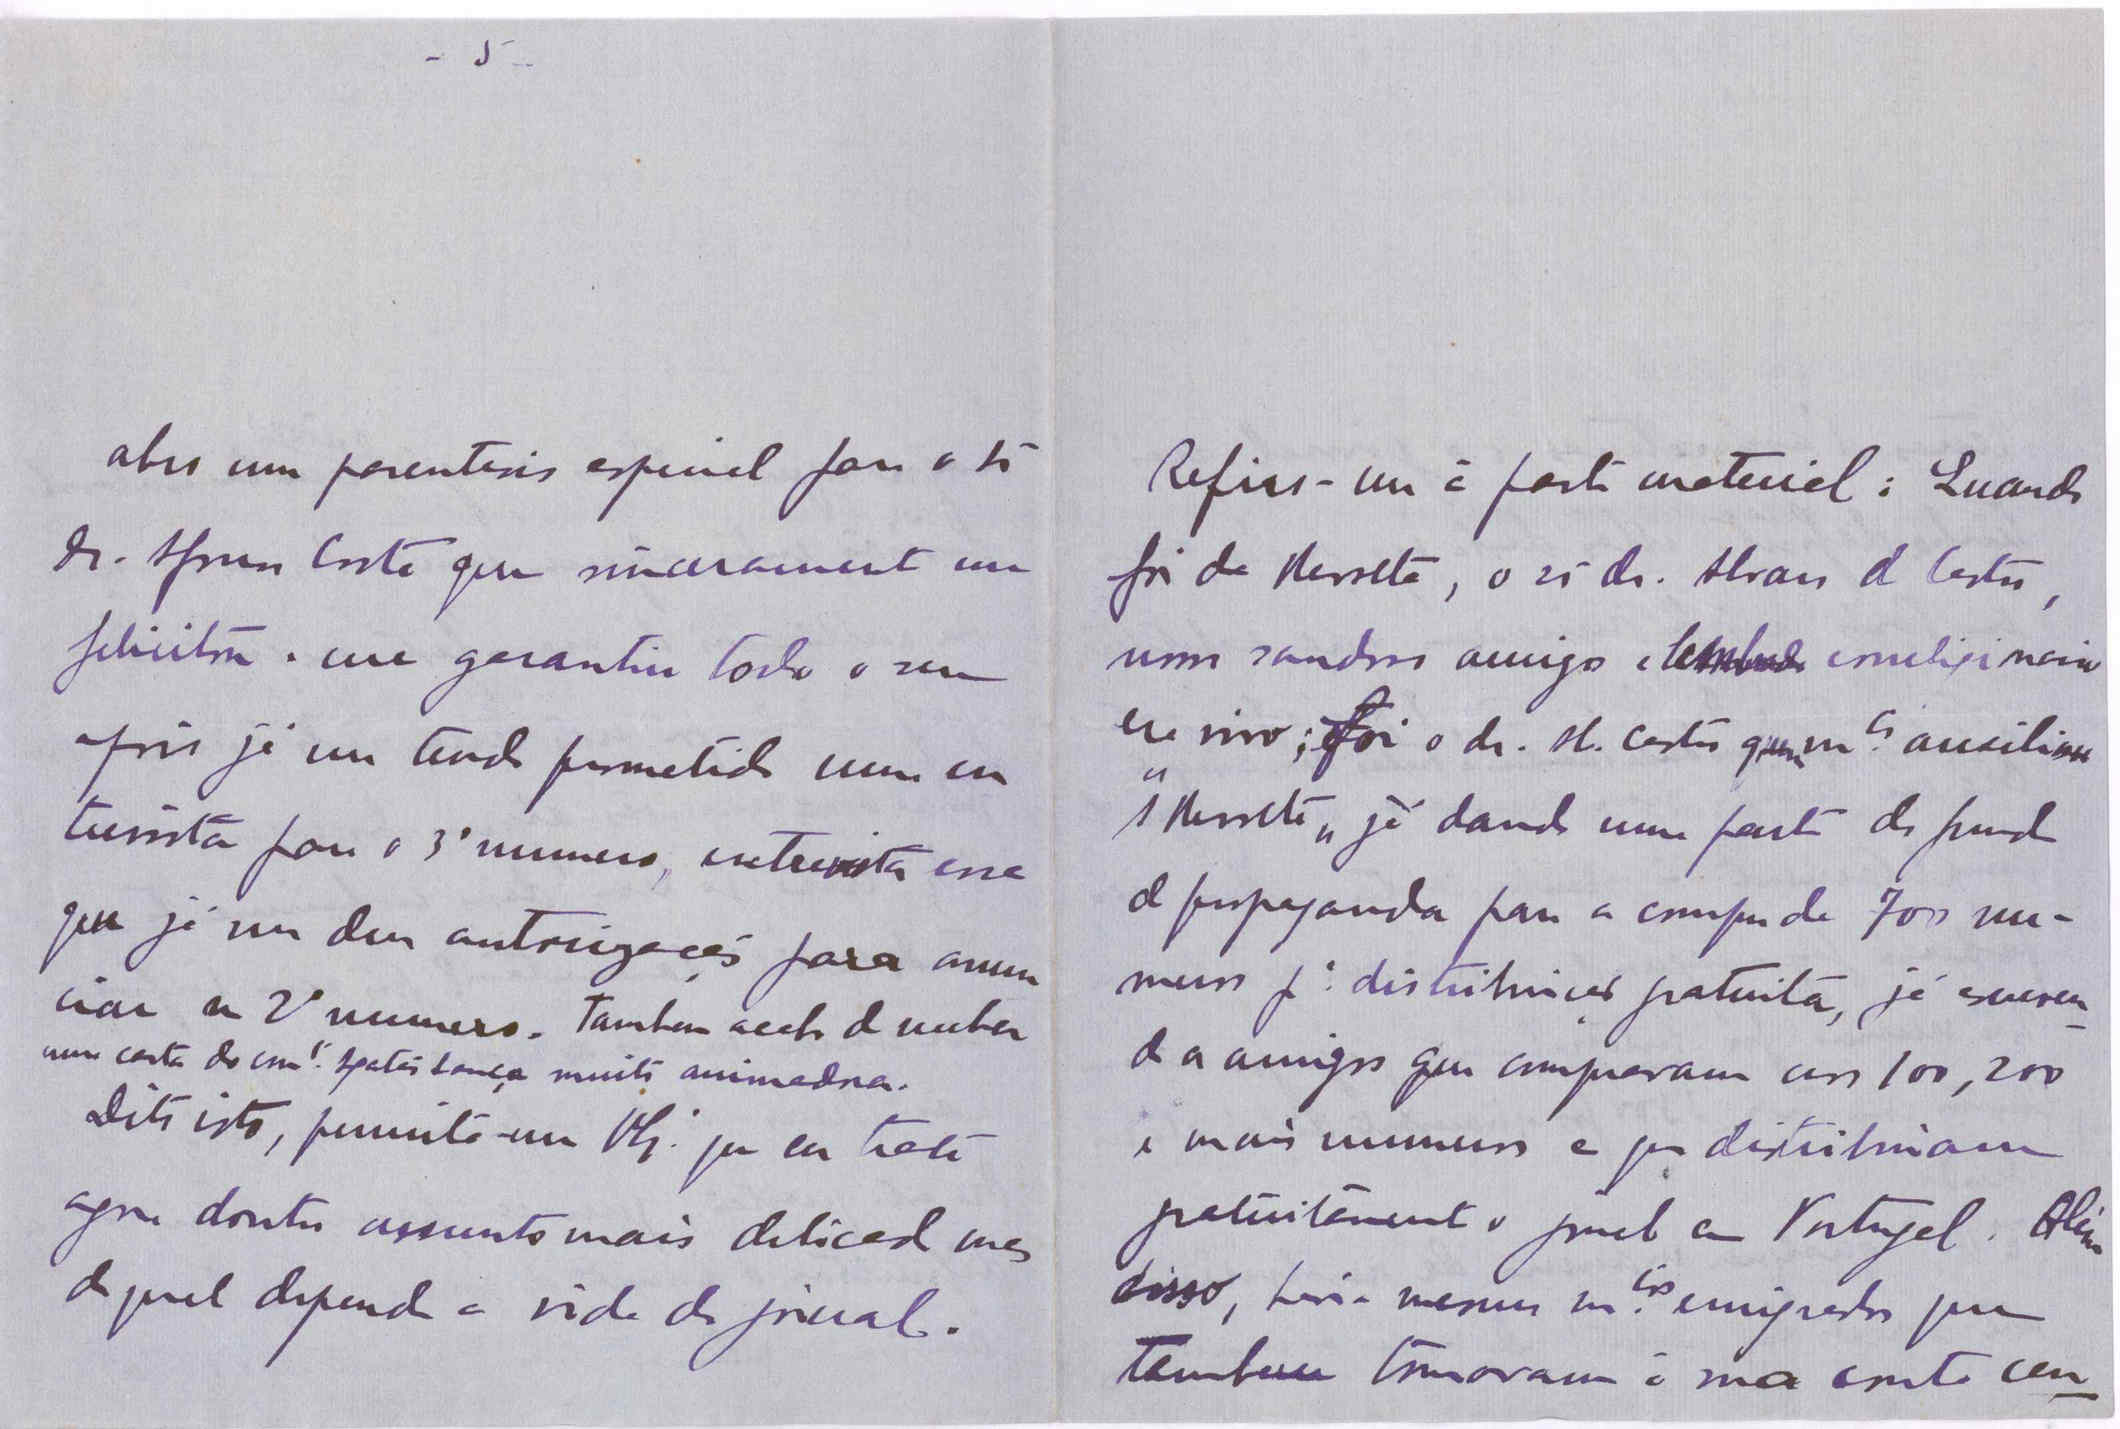 - 5 -
abro um parentesis especial para o sr
dr. Afonso Costa que sinceramente me
felicitou e me garantiu todo o seu
apoio já me tendo prometido uma en
trevista para o 3º numero, entrevista essa
que já me deu autorização para anun
ciar no 2º numero. Tambem acabo de receber
uma carta do com.te muito animadora.
Dito isto, permita-me V. que eu trate
agora doutro assunto mais delicado mas
do qual depende a vida do jornal.
Refiro-me á parte material: Quando
foi da Revolta, o sr dr. Alvaro de Castro,
nosso saudoso amigo e correligionario
era vivo; foi o dr. A. Castro quem m.to auxiliou
"A Revolta" já dando uma parte do fundo
de propaganda para a compra de 700 nu-
meros p.a distribuição gratuita, já escreven-
do a amigos que compravam uns 100, 200
e mais numeros e que distribuiam
gratuitamente o jornal em Portugal. Além
disso, havia mesmo m.tos emigrados que
tambem tomavam á sua conta cen-